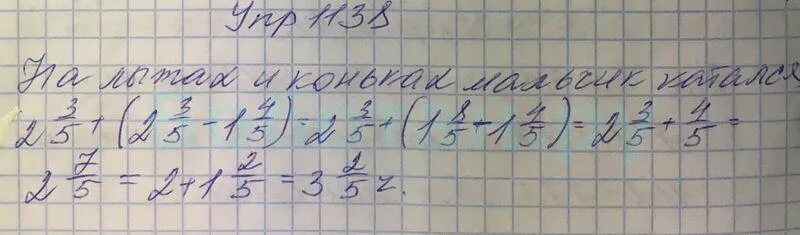 Упр 1138
На лыжах и коньках мальчик катался
2 3/5 + (2 3/5 - 1 4/5) = 2 3/5 + (1 8/5 - 1 4/5) = 2 3/5 + 4/5 =
2 7/5 = 2 + 1 2/5 = 3 2/5 ч.